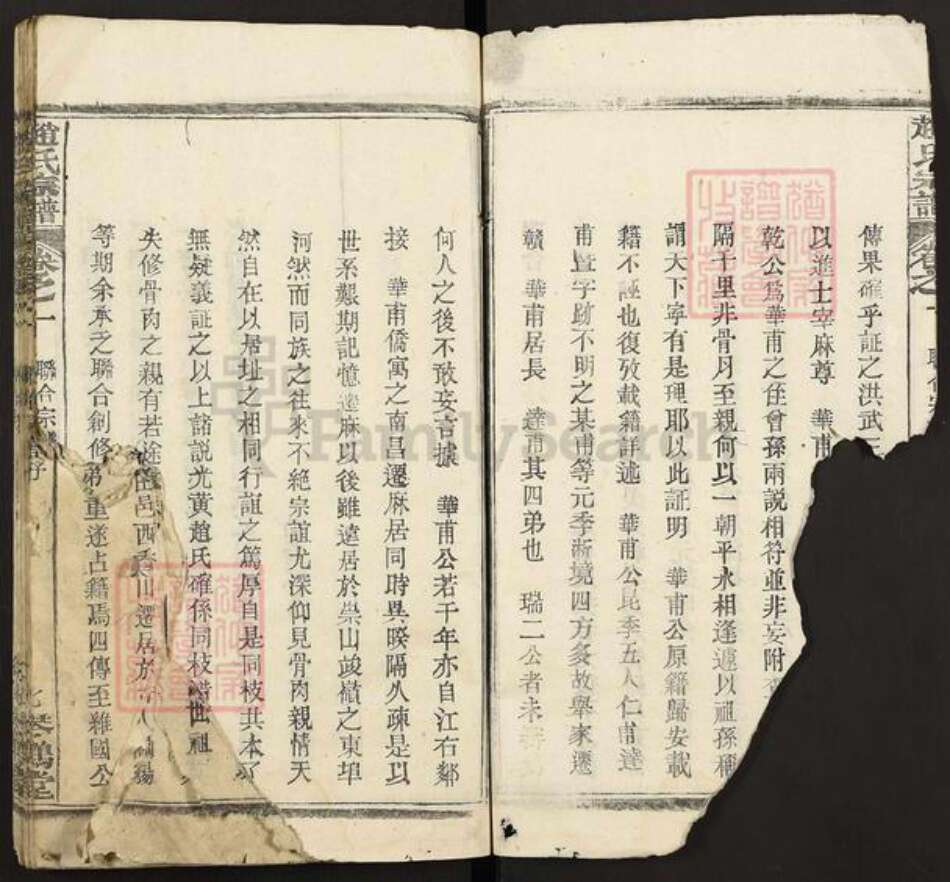 趙氏宗譜
傳果確乎証之洪武三
以進士宰麻尊　華甫
乾公爲華甫之侄曾孫兩説相符並非妄附
隔千里非骨月至親何以一朝平水相逢遽以祖孫稱
謂天下寧有是理耶以此証明　華甫公原籍歸安載
籍不誣也復攷載籍詳述　華甫公昆季五人仁甫達
甫暨字跡不明之某甫等元季浙境四方多故舉家遷
贛　華甫居長　達甫其四弟也　瑞二公者未
何人之後不敢妄言據　華甫公若干年亦自江右鄰
接　華甫僑寓之南昌遷麻居同時異暌隔久疎是以
世系艱期記憶遷麻以後雖遠居於崇山竣嶺之東埠
河然而同族之往來不絕宗誼尤深仰見骨肉親情天
然自在以居址之相同行誼之篤厚自是同枝共本了
無疑義証之以上諸説光黄趙氏確係同枝惜世祖
失修骨肉之親有若途邑西川遷居於
等期余承之聯合創修弟重遂占籍焉四傳至雜國公
趙氏宗譜
卷之一
聯合宗譜
琴鶴堂
FamilySearch